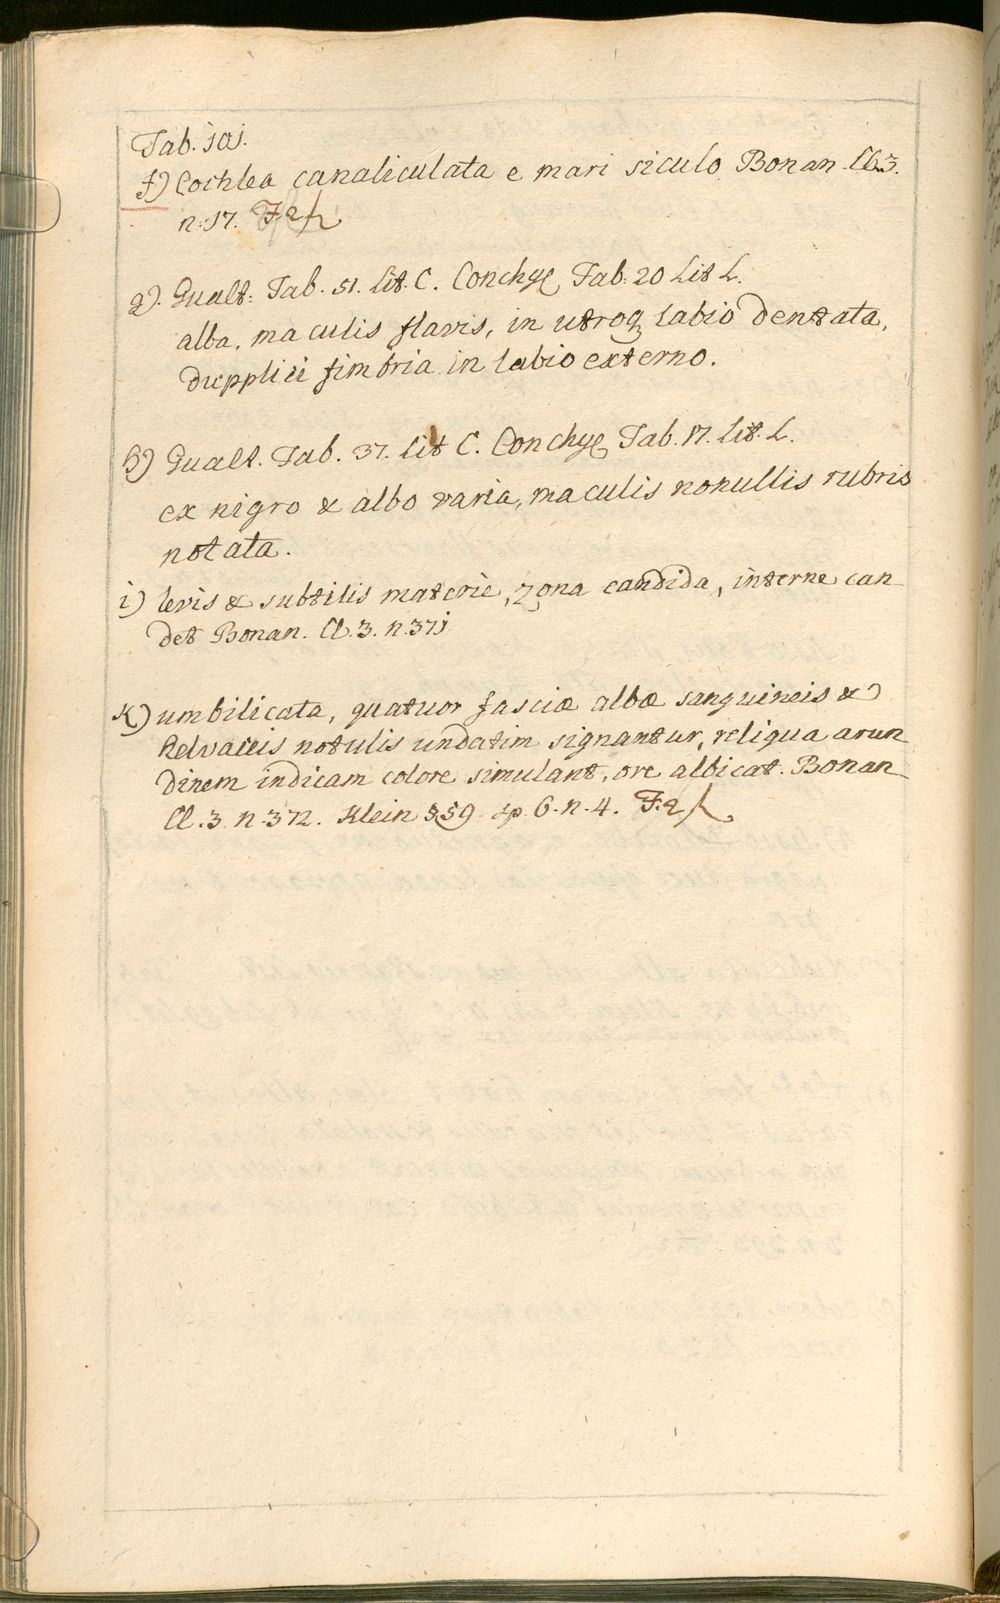 Tab. 101.
f) Cochlea canaliculata e mari siculo Bonan Cl. 3.
n. 17. F. 2
g). Gualt: Tab. 51. lit. C. Conchyl Tab. 20 Lit L.
alba, maculis flavis, in utroq labio dentata,
dupplici fimbria in labio externo.
h) Gualt. Tab. 37. lit C. Conchyl Tab. 17. Lit. L.
ex nigro & albo varia, maculis nonullis rubris
notata.
i) levis & subtilis materie, zona candida, interne can
det Bonan. Cl. 3. n. 371
k) umbilicata, quatuor fasciæ albæ sanguineis &
helvaceis notulis undatim signantur, reliqua arun
dinem indicam colore simulant, ore albicat. Bonan
Cl. 3. n. 372. Klein § 59. sp. 6. n. 4. F. 2